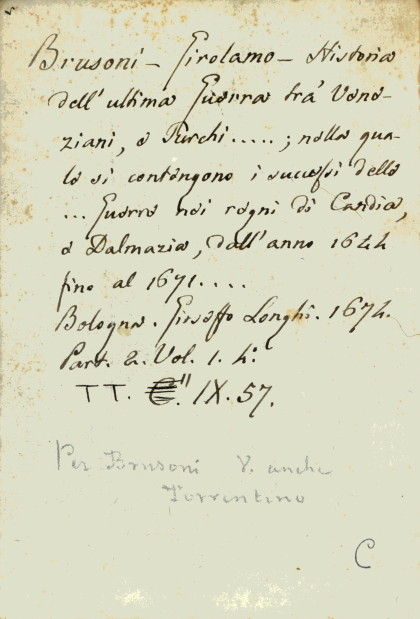 Brusoni - Girolamo - Historia
dell'ultima Guerra trà Vene-
ziani, e Turchi.....; nella qua-
le si contengono i successi delle
... Guerre nei regni di Candia,
e Dalmazia, dall'anno 1644
fino al 1671....
Bologna. Gioseffo Longhi. 1674.
Part. 2. Vol. 1. 4°.
TT. IX. 57.
Per Brusoni V. anche
Torrentino
C